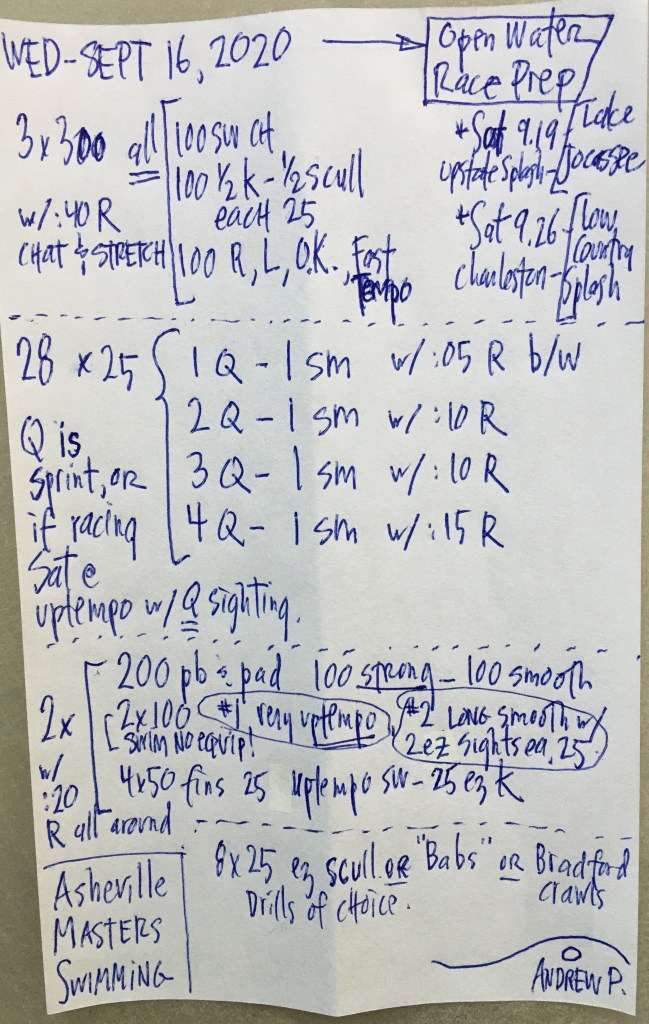 WED-SEPT 16, 2020
Open Water
Race Prep
3x300 all
w/:40 R
CHAT & STRETCH
100 SW CH
100 1/2 K - 1/2 scull
each 25
100 R, L, O.K., Fast
Tempo
*Sat 9.19
Upstate Splash-
Lake
Jocassee
*Sat 9.26
Charleston-
Low
Country
Splash
28 x 25
1 Q - 1 sm w/:05 R b/w
2 Q - 1 sm w/:10 R
3 Q - 1 sm w/:10 R
4 Q - 1 sm w/:15 R
Q is
sprint, or
if racing
Sat @
uptempo w/ Q sighting.
2x
w/
:20
R all around
200 pb & pad 100 strong - 100 smooth
2x100 #1 very uptempo, #2 LONG smooth w/
SWIM NO equip! 2 ez sights ea. 25
4x50 fins 25 uptempo sw - 25 ez K
8x25 ez scull OR "Babs" OR Bradford
Drills of choice. crawls
Asheville
MASTERS
SWIMMING
ANDREW P.